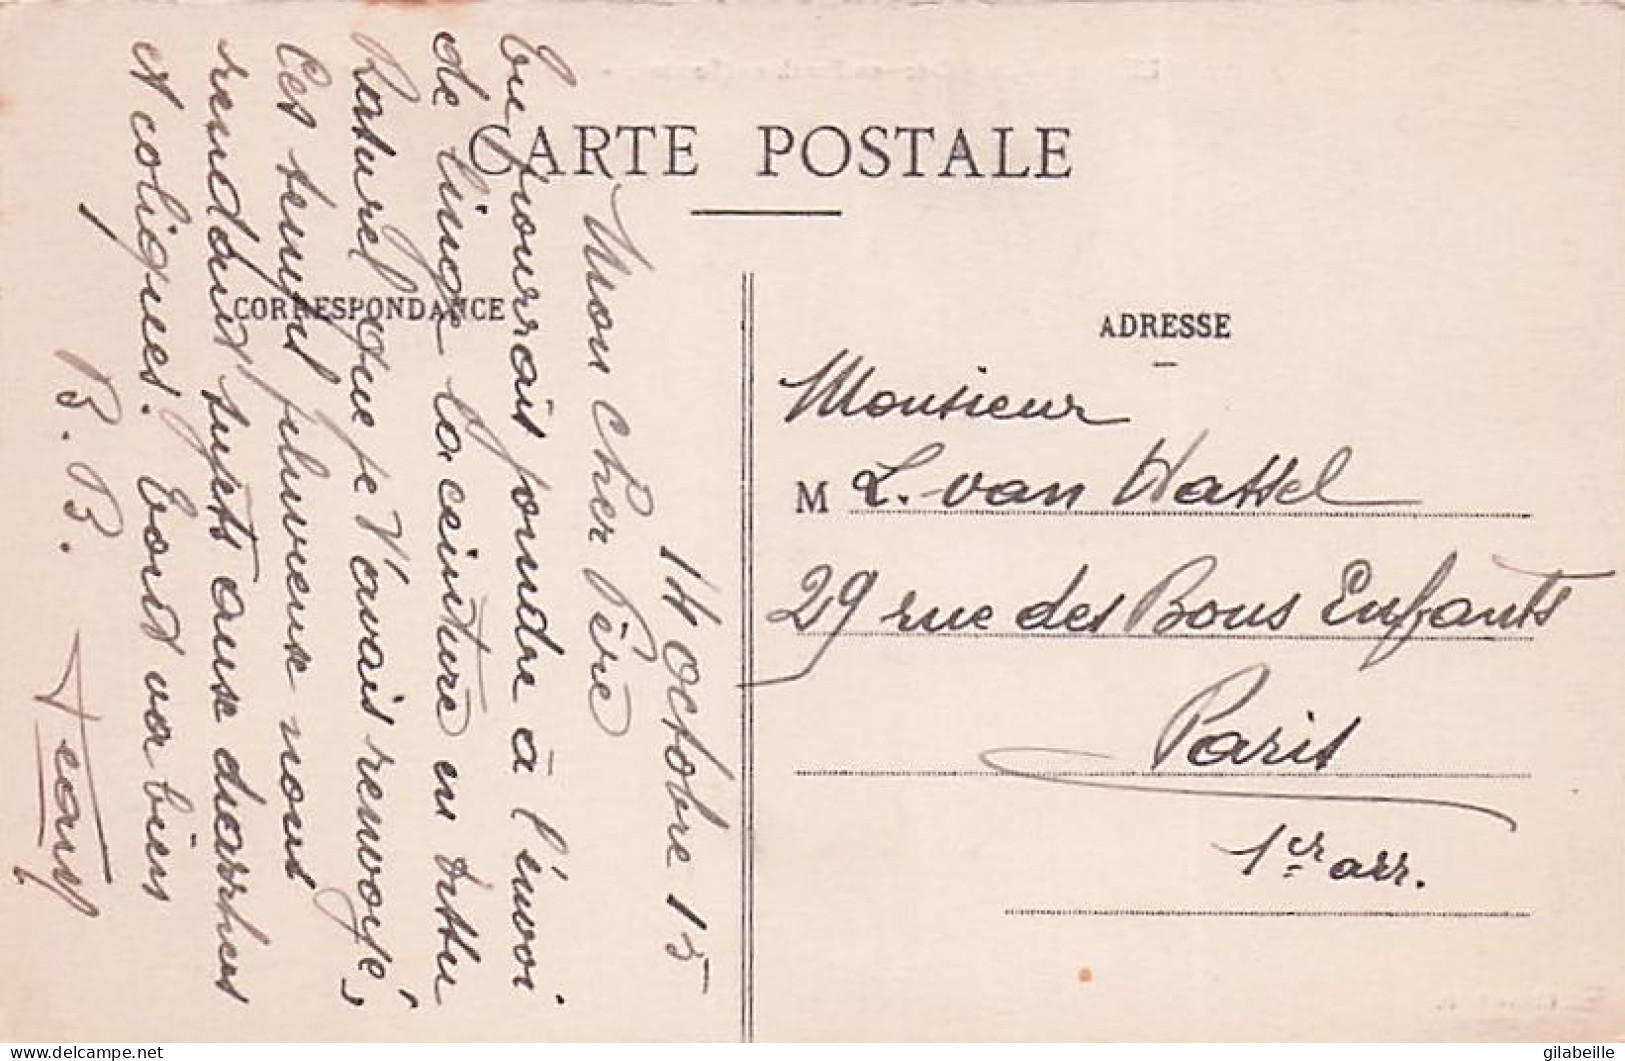 CARTE POSTALE
CORRESPONDANCE
ADRESSE
14 octobre 15
Mon cher Père
Tu pourrais joindre à l'envoi
de linge la ceinture en tissu
Rasurel que je t'avais renvoyé,
Ces temps pluvieux nous
rendant sujets aux diarrhées
et coliques. Tout va bien
B. B. Jean
Monsieur
M L. van Hassel
29 rue des Bons Enfants
Paris
1er arr.
delcampe.net
gilabeille